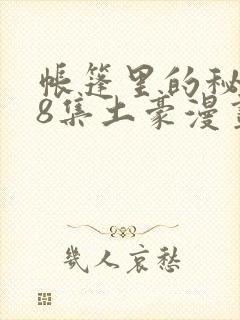 帐篷里的秘
8集土豪漫
几人哀愁